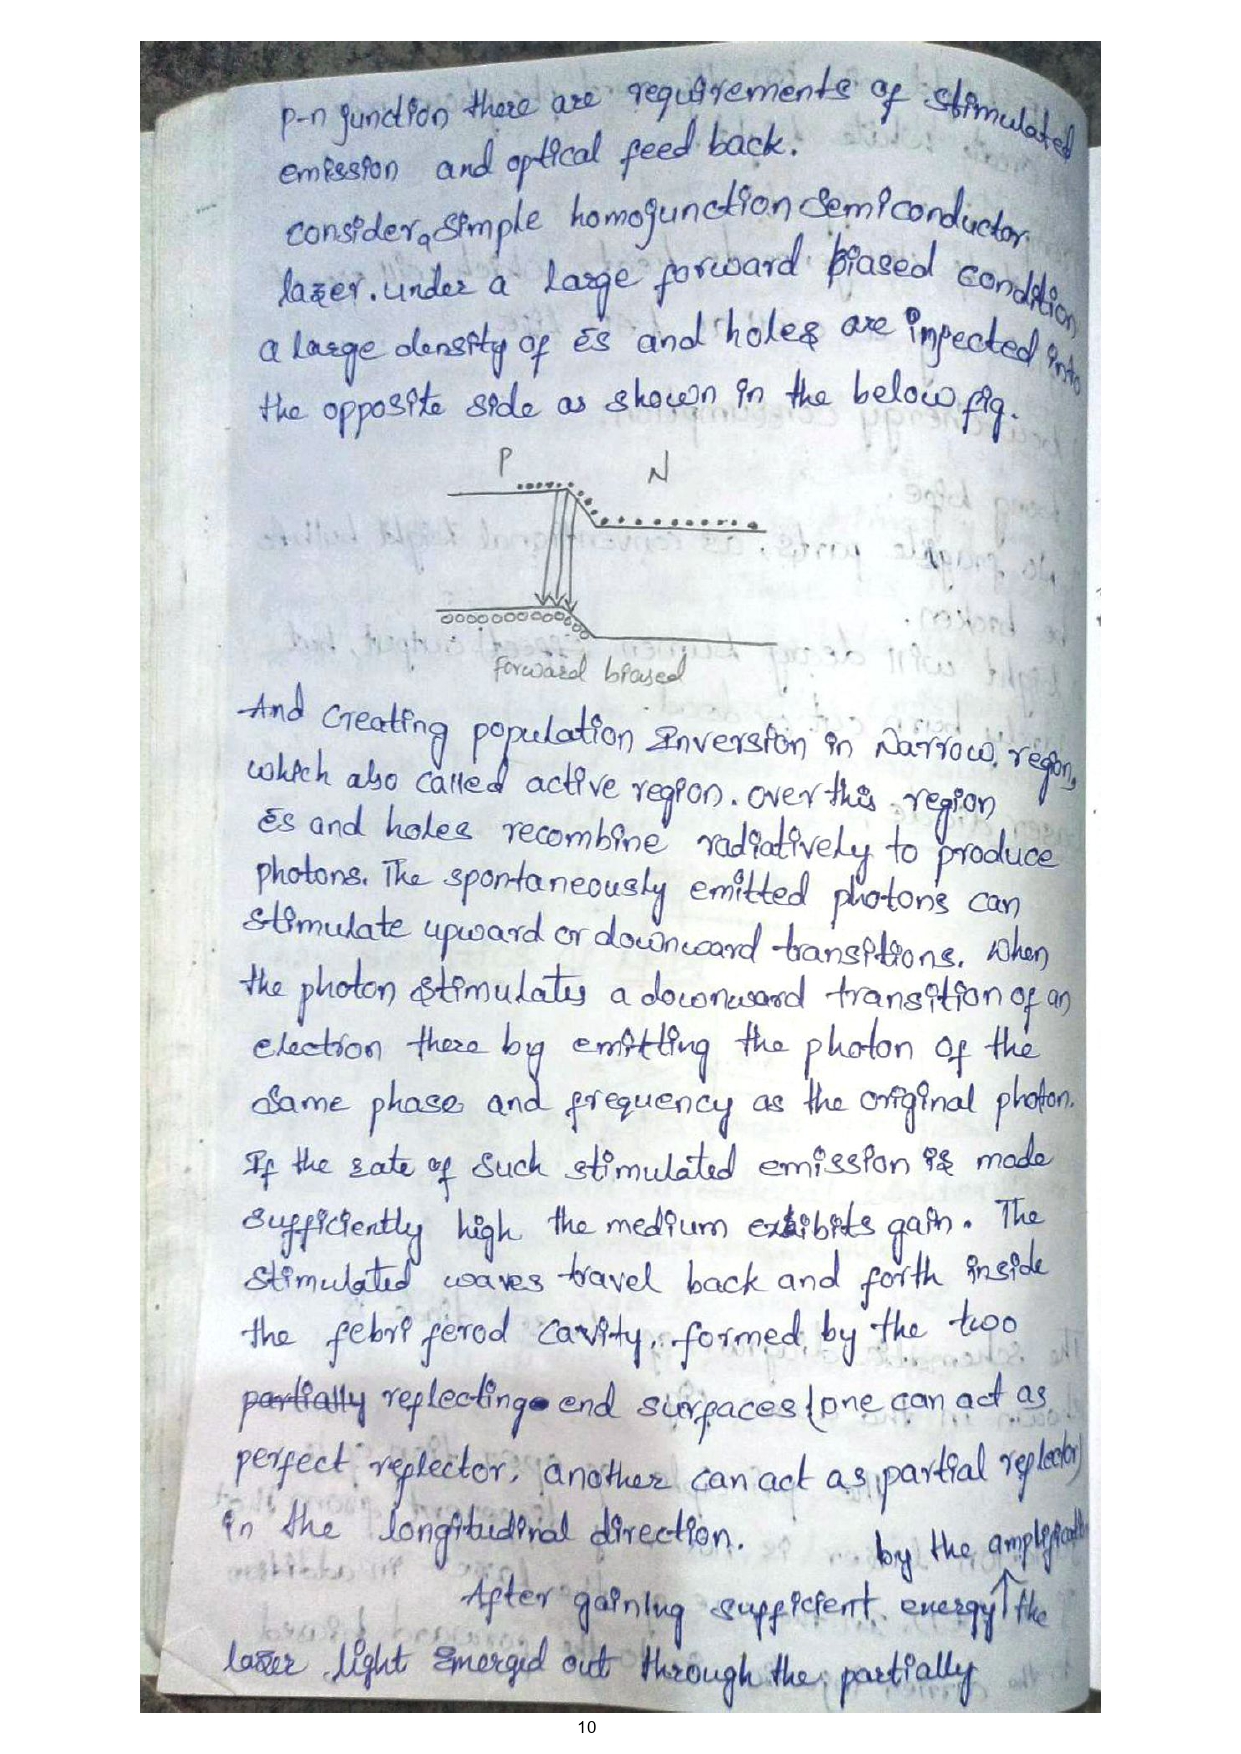 p-n junction there are requirements of stimulated
emission and optical feed back.
consider a simple homojunction semiconductor
lazer. under a large forward biased condition
a large density of ēs and holes are injected into
the opposite side as shown in the below fig.
P N
forward biased
And creating population Inversion in Narrow region,
which also called active region. over this region
ēs and holes recombine radiatively to produce
photons. The spontaneously emitted photons can
stimulate upward or downward transitions. When
the photon stimulates a downward transition of an
electron there by emitting the photon of the
same phase and frequency as the original photon.
If the rate of such stimulated emission is made
sufficiently high the medium exhibits gain. The
stimulated waves travel back and forth inside
the febri ferod cavity, formed by the two
partially reflecting end surfaces (one can act as
perfect reflector, another can act as partial reflector)
in the longitudinal direction.
by the
After gaining sufficient energy ↑ the
lazer light emerged out through the partially
10